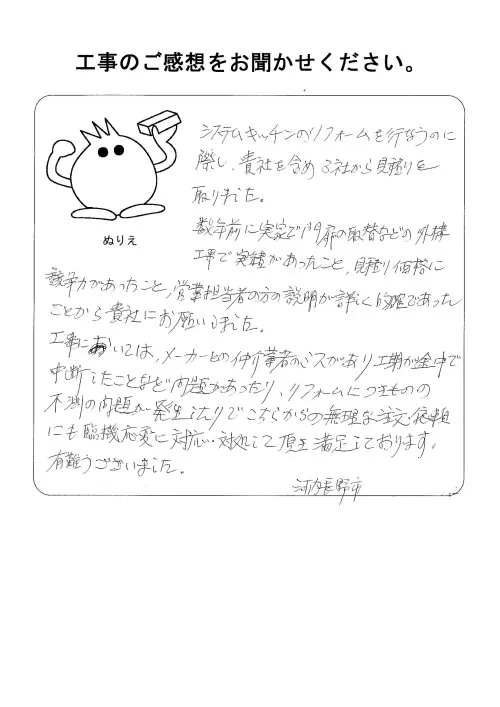 工事のご感想をお聞かせください。
システムキッチンのリフォームを行なうのに
際し、貴社を含め3社から見積りを
取りました。
数年前に実家で門扉の取替などの外構
工事で実績があったこと、見積り価格に
ぬりえ
競争力があったこと、営業担当者の方の説明が詳しく的確であった
ことから貴社にお願いしました。
工事においては、メーカーとの仲介業者のミスがあり工期が途中で
中断したことなど問題があったり、リフォームにつきものの
不測の問題が発生したりでこちらからの無理な注文・
にも臨機応変に対応・対処して頂き満足しております。
有難うございました。
河内長野市